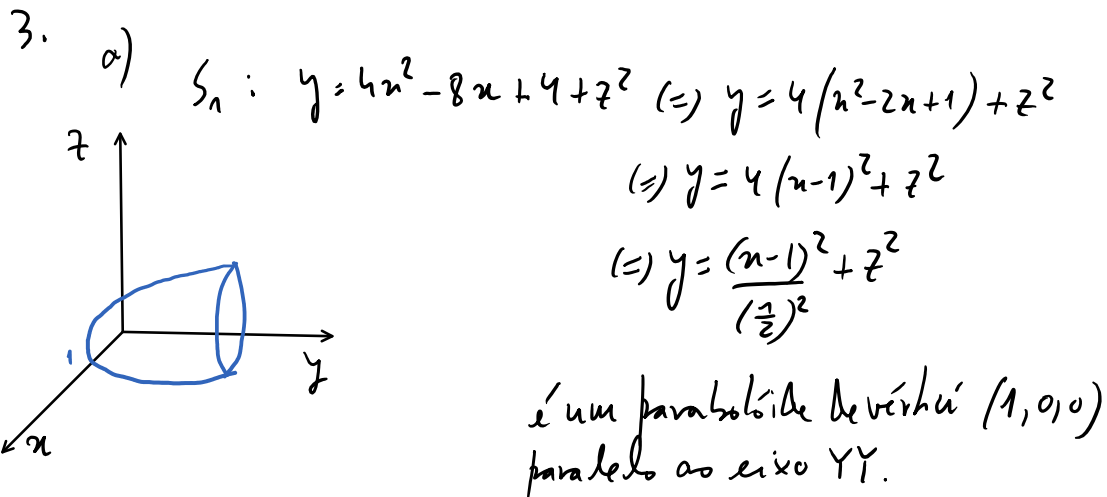 3.
a)
S₁ : y = 4x² - 8x + 4 + z² (=) y = 4(x² - 2x + 1) + z²
(=) y = 4(x-1)² + z²
(=) y = (x-1)²/(1/2)² + z²
z
1
y
x
é um parabolóide de vértice (1,0,0)
paralelo ao eixo YY.